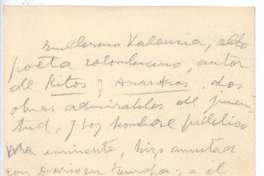 Guillermo Valencia, alto
poeta colombiano, autor
de Ritos y Anarkos, dos
obras admirables de juven
tud, y hoy hombre público
eminente, hizo amistad
con Darío en Europa; a él